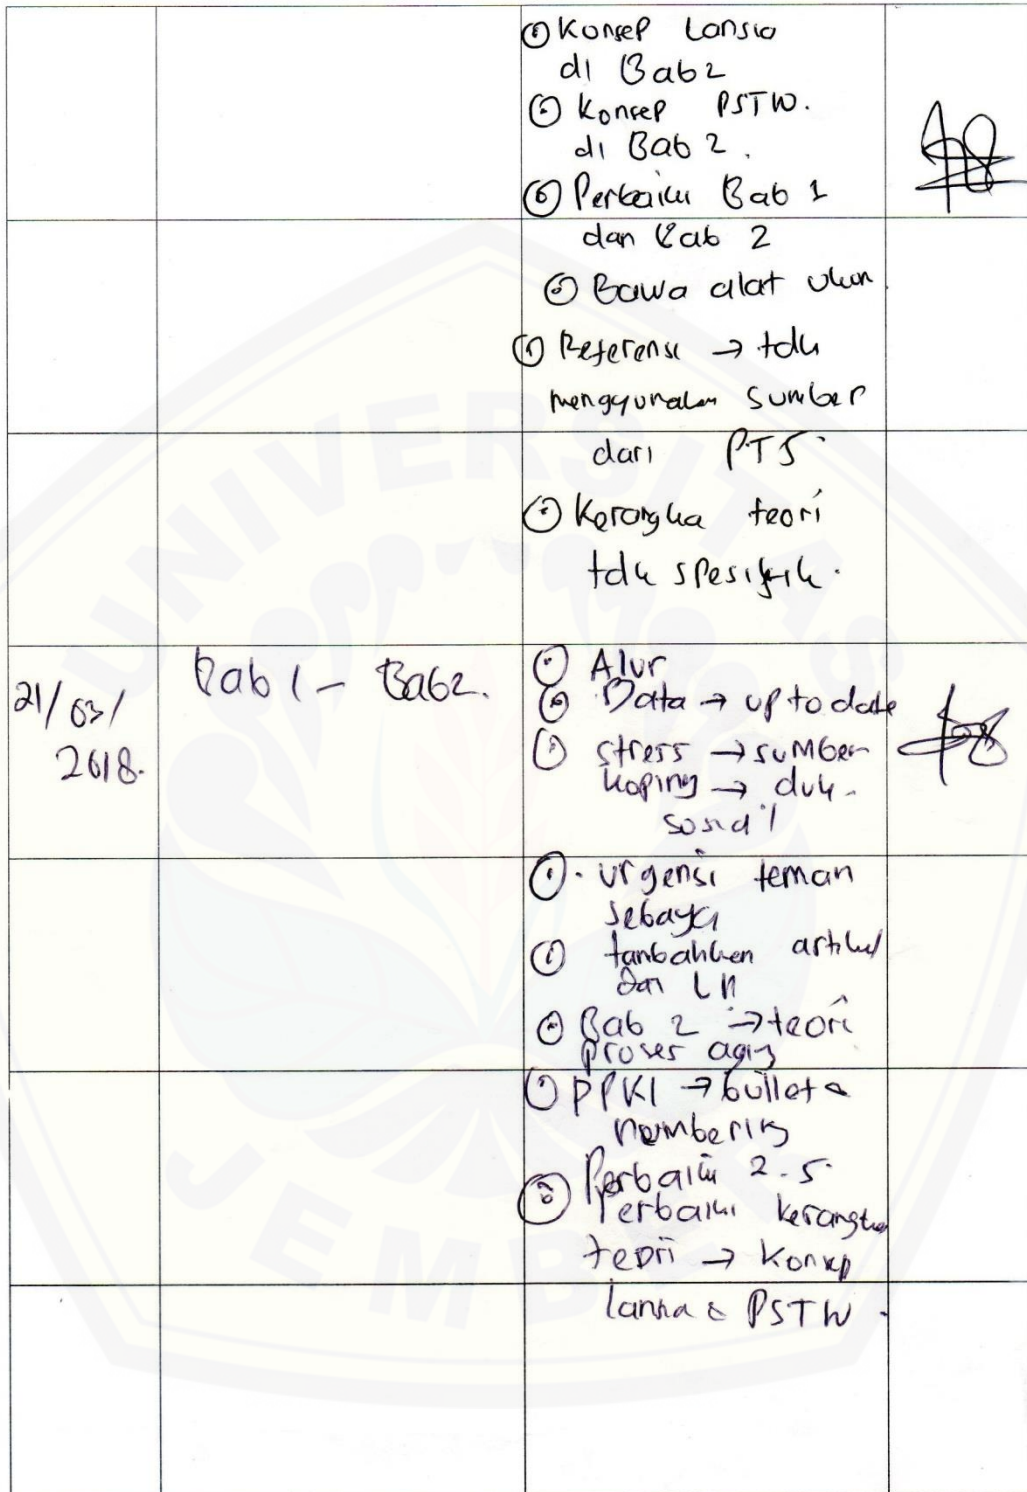 Konsep Lansia
di Bab 2
Konsep PSTW.
di Bab 2.
Perbaiki Bab 1
dan Bab 2
Bawa alat ukur
Referensi → tdk
menggunakan sumber
dari PTS.
Kerangka teori
tdk spesifik.
21/03/
2018.
Bab 1 - Bab 2.
Alur
Data → up to date
stress → sumber
koping → duk.
sosial
urgensi teman
sebaya
tambahkan artikel
dari LN
Bab 2 → teori
proses aging
PPKI → bullet &
numbering
Perbaiki 2.5.
Perbaiki kerangka
teori → konsep
lansia & PSTW.
UNIVERSITAS
JEMBER